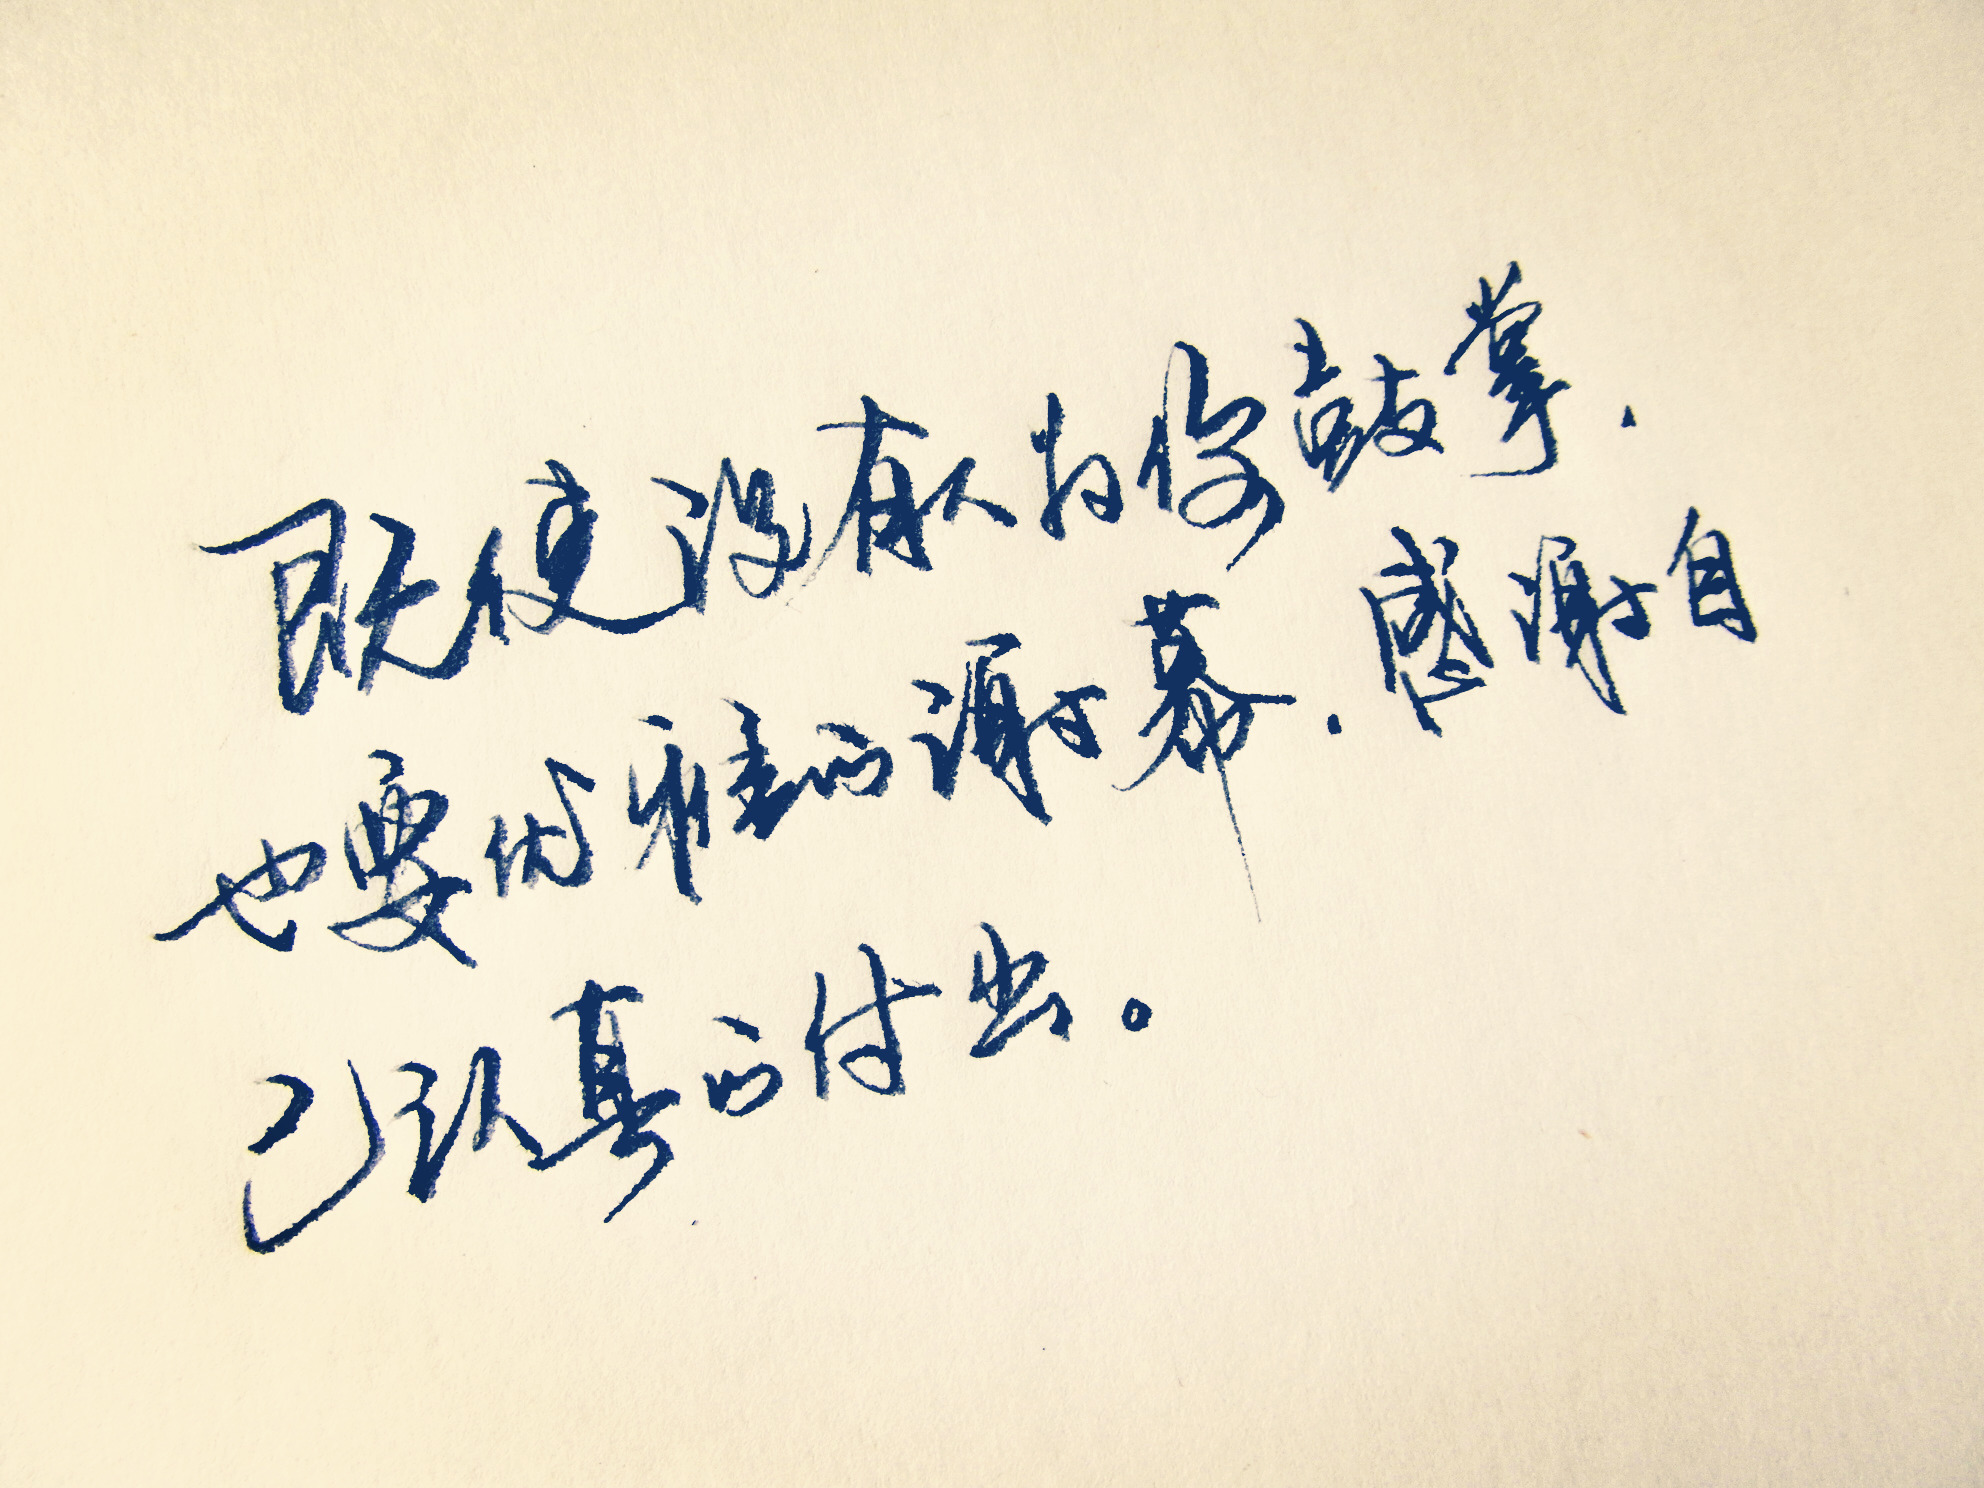 既使没有人为你鼓掌.
也要优雅的谢幕.感谢自
己认真的付出。